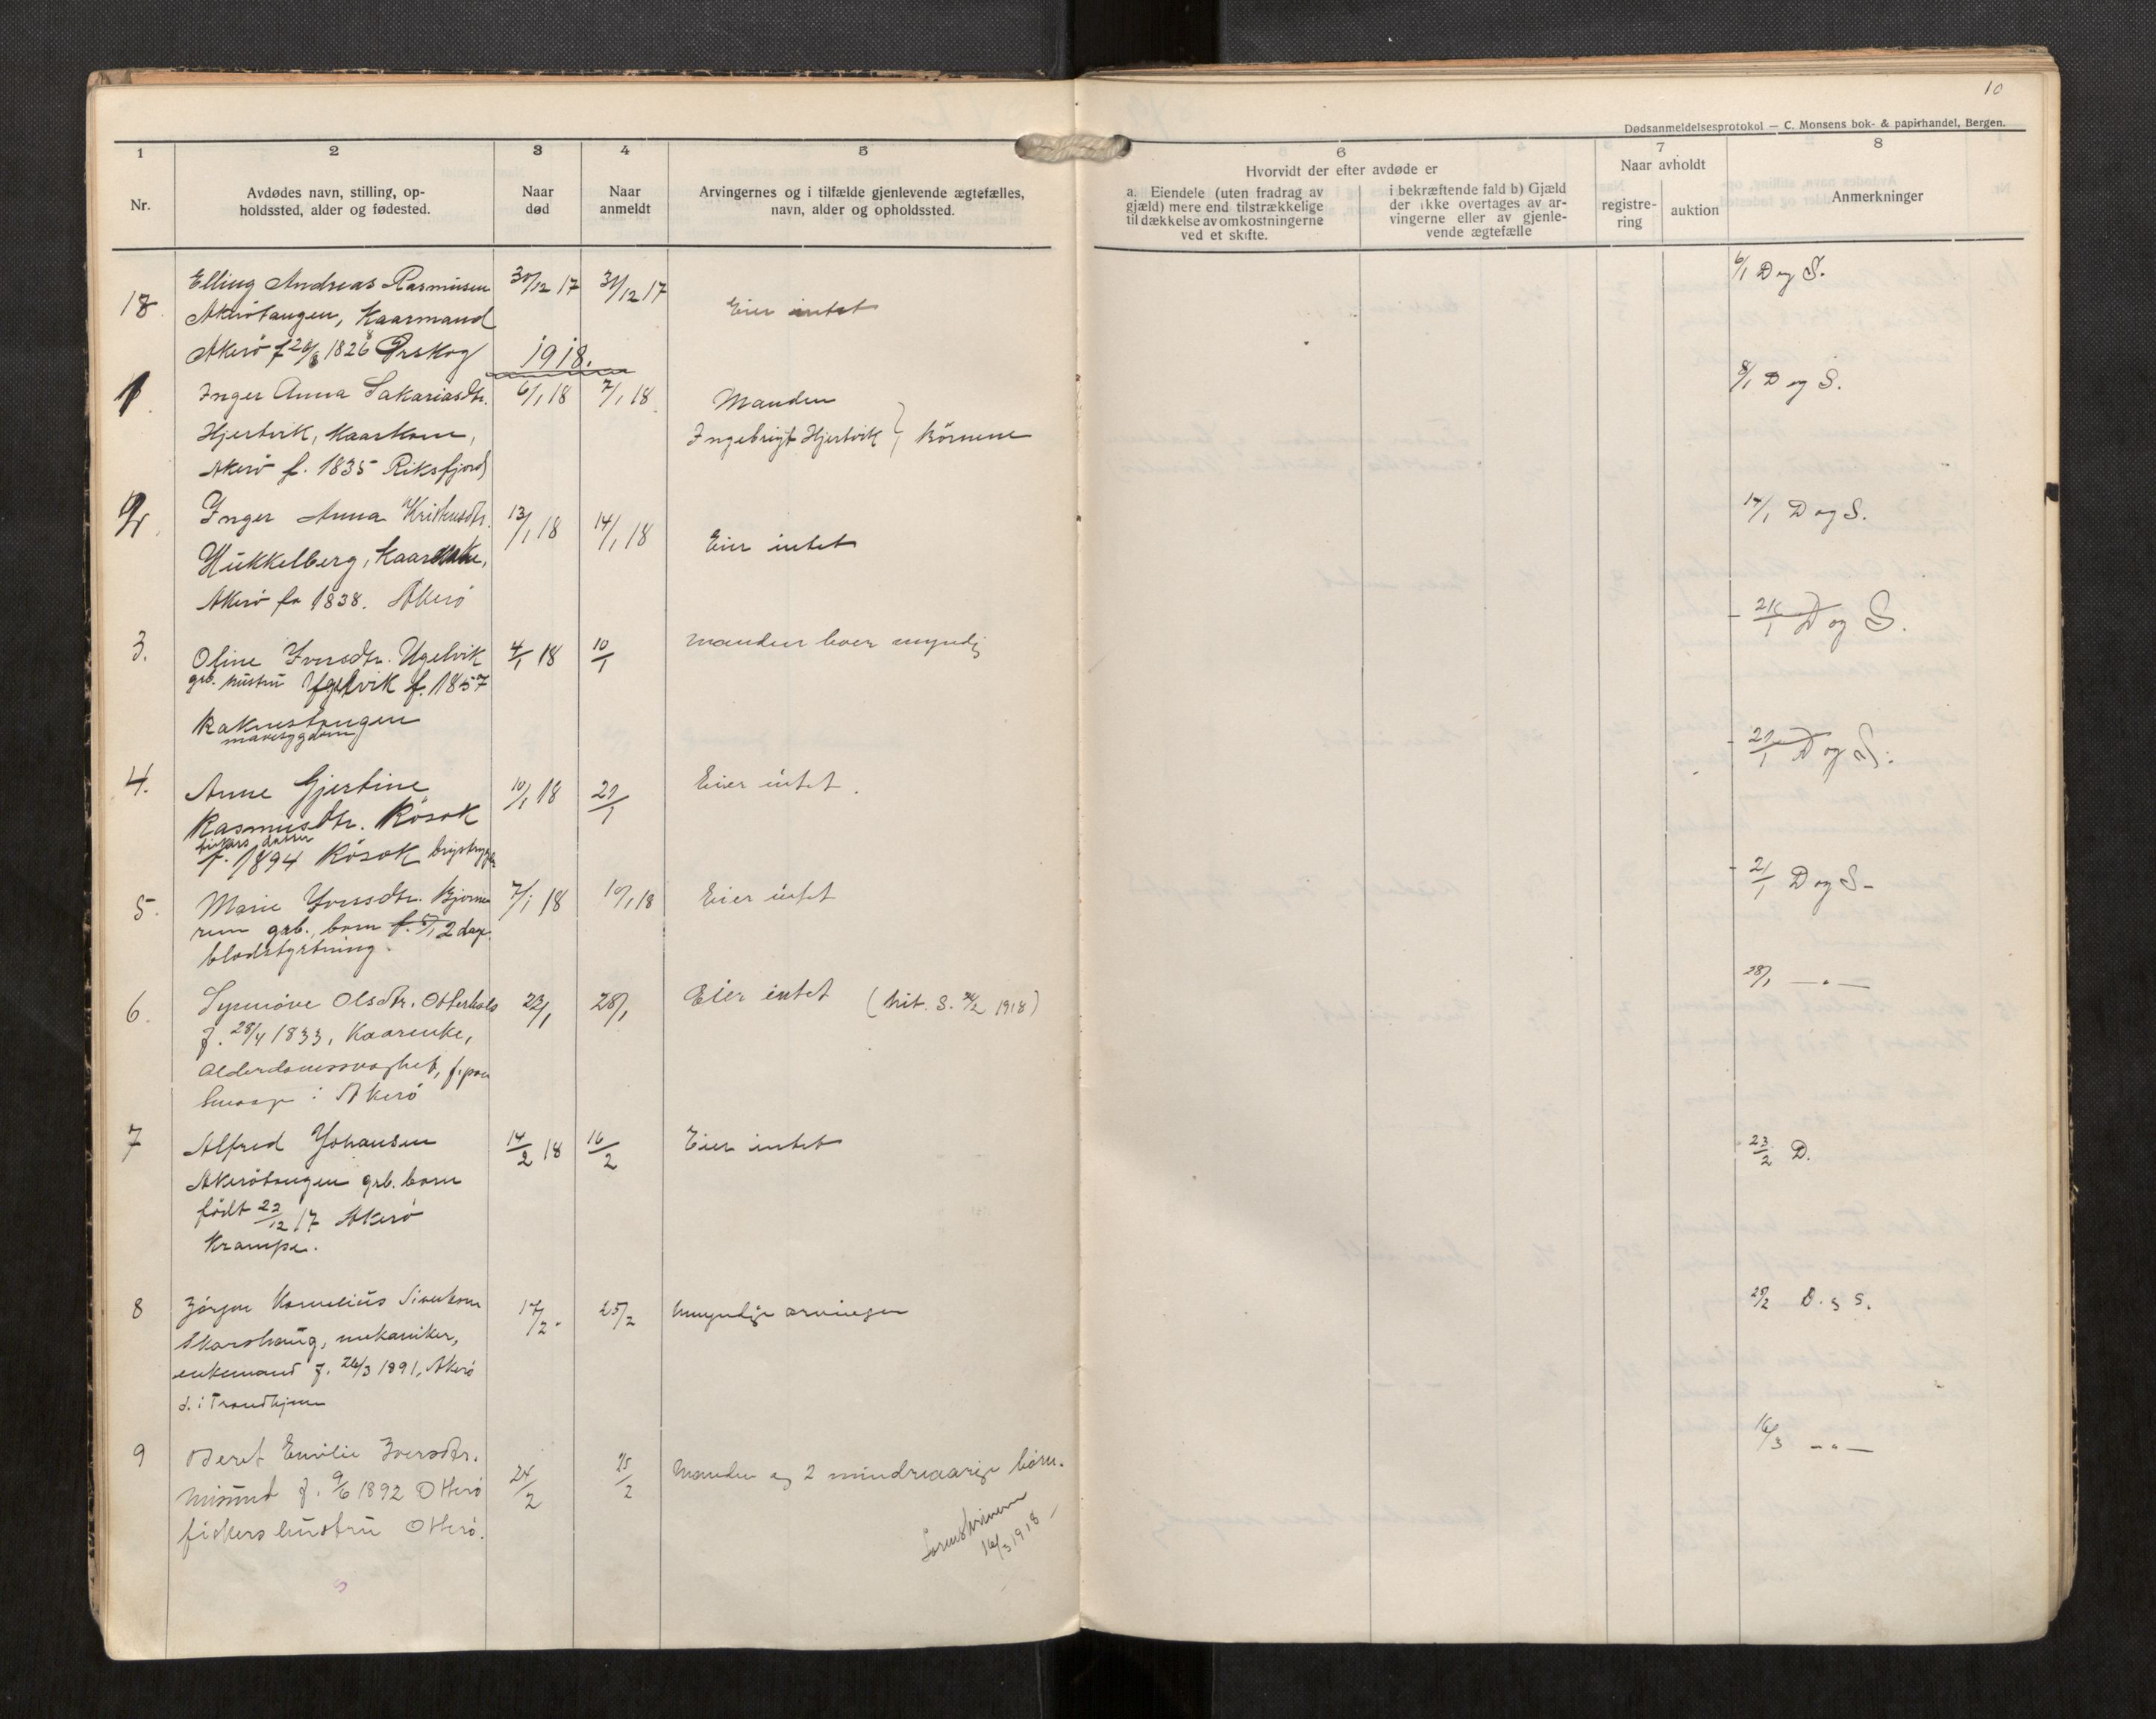 10
Dødsanmeldelsesprotokol — C. Monsens bok- & papirhandel, Bergen.
1 2 3 4 5 6 7 8
Nr.
Avdødes navn, stilling, op-
holdssted, alder og fødested.
Naar
død
Naar
anmeldt
Arvingernes og i tilfælde gjenlevende ægtefælles,
navn, alder og opholdssted.
Hvorvidt der efter avdøde er
a. Eiendele (uten fradrag av
gjæld) mere end tilstrækkelige
til dækkelse av omkostningerne
ved et skifte.
i bekræftende fald b) Gjæld
der ikke overtages av ar-
vingerne eller av gjenle-
vende ægtefælle
Naar avholdt
registre-
ring
auktion
Anmerkninger
18. Elling Andreas Rasmusen 30/12 17 31/12 17 Eier intet 6/1 D og S.
Akerötangen, Kaarmand
Akerö f 26/8 1826 Ørskog
1918.
1. Inger Anna Sakariasdtr. 6/1 18 7/1 18 Manden 8/1 D og S.
Hjertvik, Kaarkone, Ingebrigt Hjertvik } Börnene
Akerö f. 1835 Riksfjord
2. Inger Anna 13/1 18 14/1 18 Eier intet 17/1 D og S.
Hukkelberg,
Akerö 1838. Akerö
3. Oline Iversdtr. Ugelvik 4/1 18 10/1 manden myndig 21/1 D og S.
grb. hustru Ugelvik f. 1857
Raknestangen
mavesygdom
4. Anne Gjertine 10/1 18 21/1 Eier intet. 21/1 D og S.
Rasmusdtr. Rösok
f. 1894 Rösok
5. Marie Iversdtr. Björne 7/1 18 10/1 18 Eier intet 21/1 D og S-
rem grb. barn f. 5/1 2 dage
blodstyrtning.
6. Synnöve Olsdtr. Otterhals 22/1 28/1 Eier intet (Mit. S. 1918) 28/1 — " —
f. 28/4 1833, Kaarenke,
Alderdomssvaghet, f. paa
i Akerö
7 Alfred Johansen 14/2 18 16/2 Eier intet 23/2 D.
Akerötangen grb. barn
födt 22/12 17 Akerö
Krampe.
8 Jörgen Kornelius Sivertsen 17/2 25/2 arvinger D. s S.
Skarshaug, mekaniker,
enkemand f. 26/3 1891, Akerö
d. i Trondhjem
9 Beret Emilie Iversdtr. 24/2 25/2 Manden og 2 mindreaarige börn. 16/3 — " —
Misund f. 9/6 1892 Otterö
fiskers hustru Otterö.
Sorenskriveren
16/3 1918